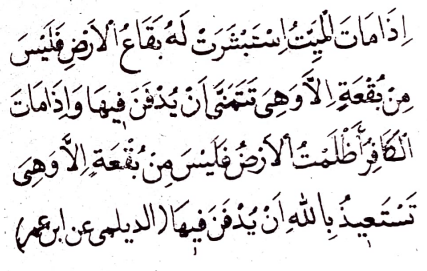 اِذَا مَاتَ الْمَيِّتُ اِسْتَبْشَرَتْ لَهُ بَقَاعُ الْاَرْضِ فَلَيْسَ
مِنْ بُقْعَةٍ اِلَّا وَهِيَ تَتَمَنَّى اَنْ يُدْفَنَ فِيهَا وَاِذَا مَاتَ
الْكَافِرُ أَظْلَمَتْ الْاَرْضُ فَلَيْسَ مِنْ بُقْعَةٍ اِلَّا وَهِيَ
تَسْتَعِيذُ بِاللهِ اَنْ يُدْفَنَ فِيهَا (الديلمى عن ابن عمر)